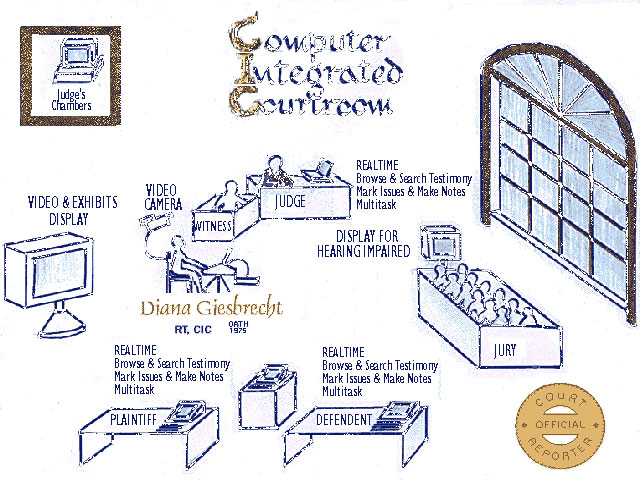 Computer
Integrated
Courtroom
Judge's
Chambers
REALTIME
Browse & Search Testimony
Mark Issues & Make Notes
Multitask
VIDEO
CAMERA
VIDEO & EXHIBITS
DISPLAY
JUDGE
WITNESS
DISPLAY FOR
HEARING IMPAIRED
Diana Giesbrecht
RT, CIC
OATH
1975
JURY
REALTIME
Browse & Search Testimony
Mark Issues & Make Notes
Multitask
REALTIME
Browse & Search Testimony
Mark Issues & Make Notes
Multitask
PLAINTIFF
DEFENDENT
COURT
OFFICIAL
REPORTER